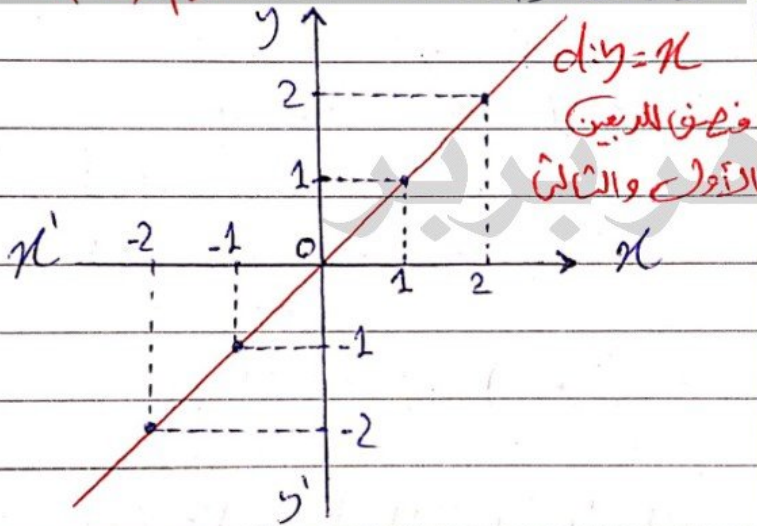 y
d: y = x
منصف للربعين
الأول والثالث
2
1
x' -2 -1 0 1 2 x
-1
-2
y'